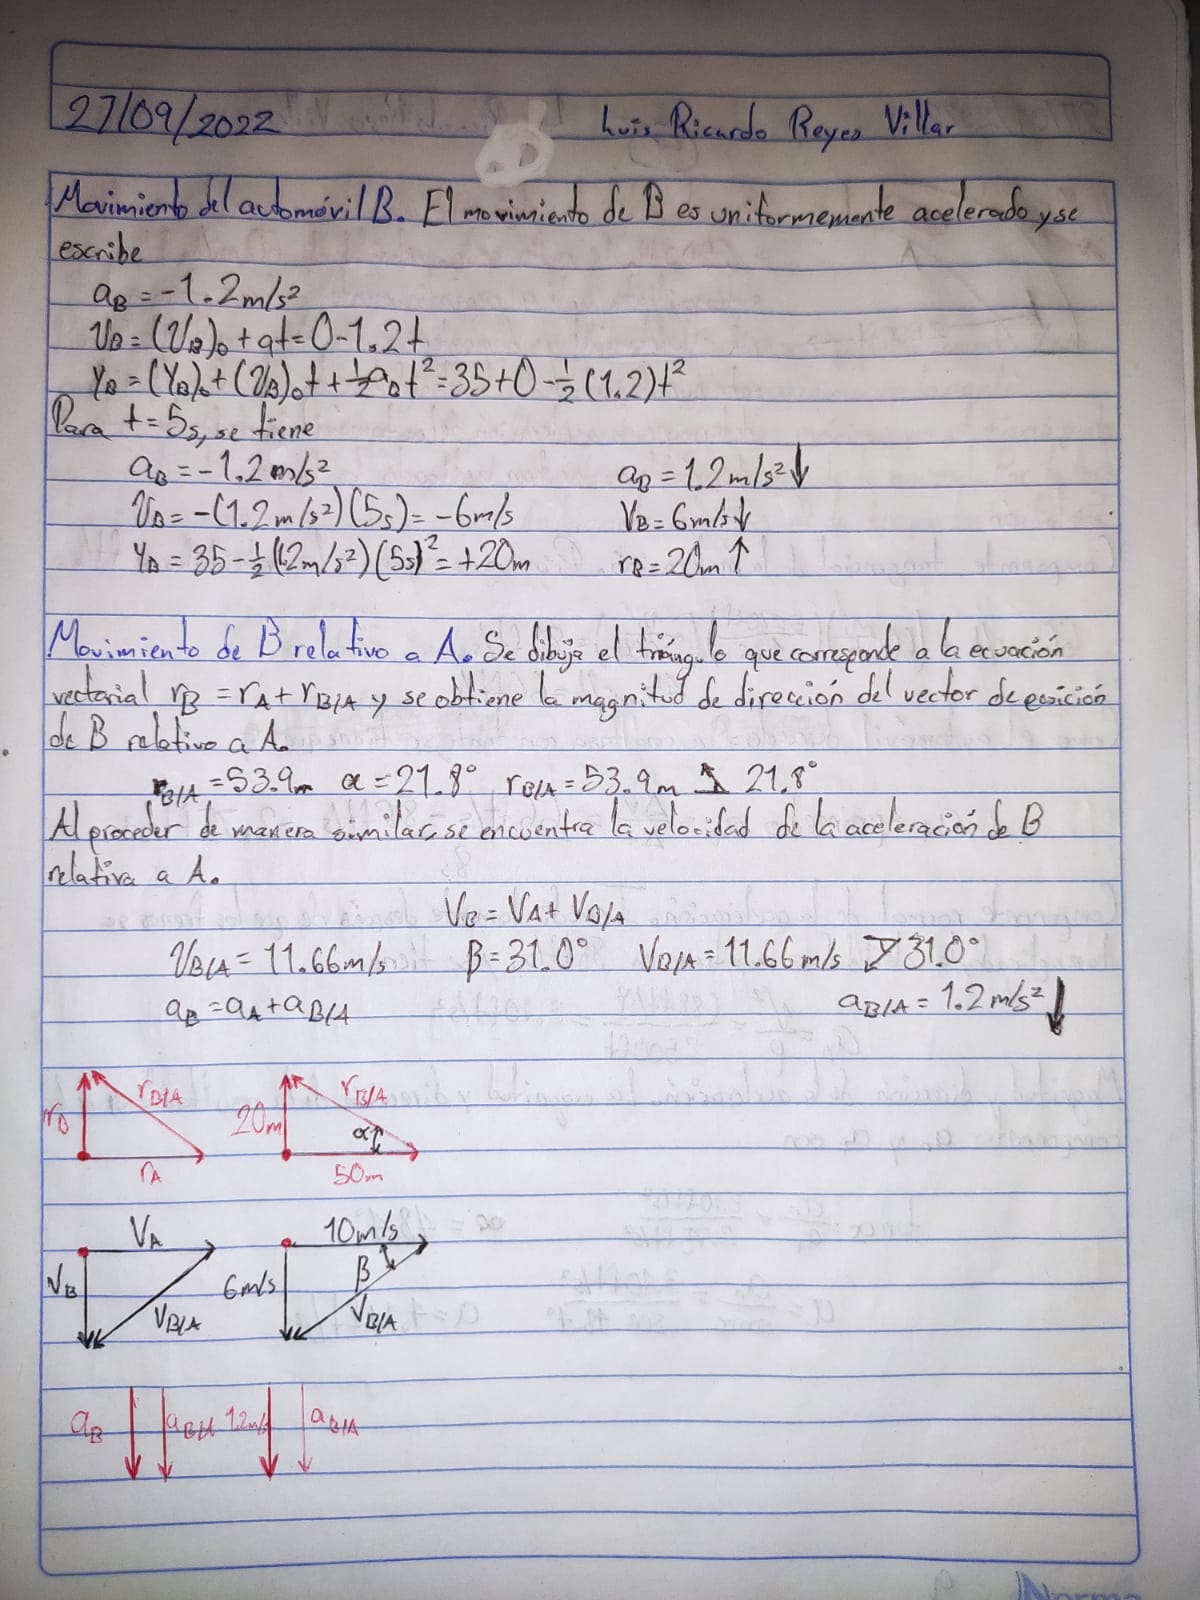 27/09/2022 Luis Ricardo Reyes Villar
Movimiento del automóvil B. El movimiento de B es uniformemente acelerado y se
escribe
aB = -1.2 m/s²
VB = (VB)₀ + at = 0 - 1.2t
YB = (YB)₀ + (VB)₀t + ½aBt² = 35 + 0 - ½(1.2)t²
Para t = 5s, se tiene
aB = -1.2 m/s² aB = 1.2 m/s² ↓
VB = -(1.2 m/s²)(5s) = -6m/s VB = 6m/s ↓
YB = 35 - ½(1.2m/s²)(5s)² = +20m rB = 20m ↑
Movimiento de B relativo a A. Se dibuja el triángulo que corresponde a la ecuación
vectorial rB = rA + rB/A y se obtiene la magnitud de dirección del vector de posición
de B relativo a A.
rB/A = 53.9m α = 21.8° rB/A = 53.9m 21.8°
Al proceder de manera similar, se encuentra la velocidad de la aceleración de B
relativa a A.
VB = VA + VB/A
VB/A = 11.66m/s β = 31.0° VB/A = 11.66m/s 31.0°
aB = aA + aB/A aB/A = 1.2 m/s² ↓
rB rB/A 20m rB/A
α
rA 50m
VA 10m/s
VB 6m/s β
VB/A VB/A
aB aB/A 1.2m/s aB/A